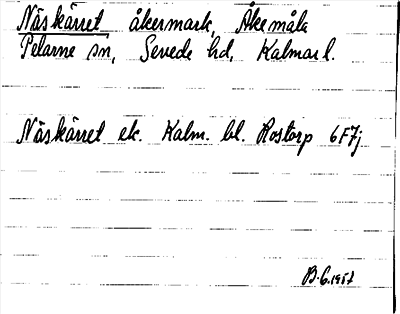 Näskärret åkermark, Åkemåla
Pelarne sn, Sevede hd, Kalmar l.
Näskärret ek. Kalm. bl. Rostorp 6F7j
B.G. 1957